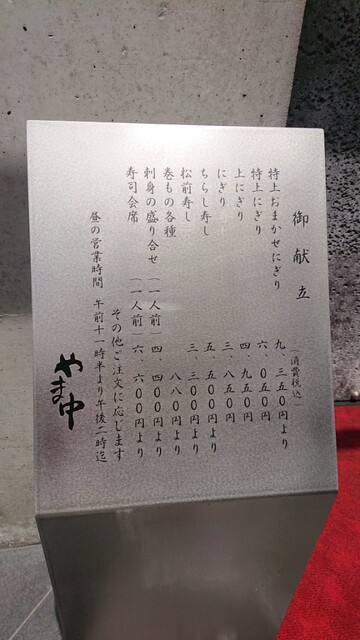 御献立
(消費税込)
特上おまかせにぎり 九、三五〇円より
特上にぎり 六、〇五〇円
上にぎり 四、九五〇円
にぎり 三、八五〇円
ちらし寿し 五、五〇〇円より
松前寿し 三、三〇〇円より
巻もの各種 八八〇円より
刺身の盛り合せ(一人前)四、四〇〇円より
寿司会席(一人前)六、六〇〇円より
その他ご注文に応じます
昼の営業時間 午前十一時半より午後二時迄
やま中